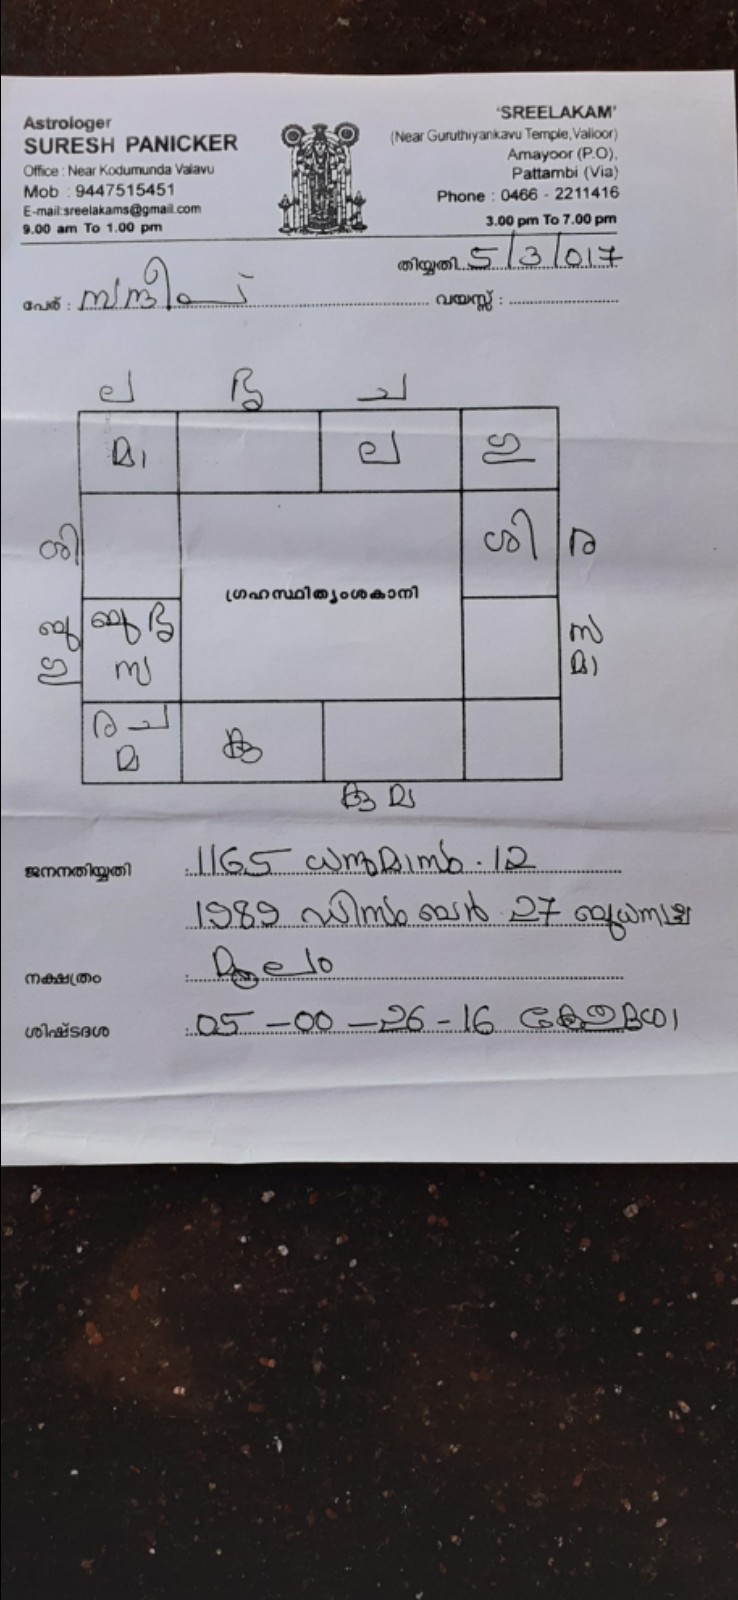 Astrologer
SURESH PANICKER
Office : Near Kodumunda Valavu
Mob : 9447515451
E-mail:sreelakams@gmail.com
9.00 am To 1.00 pm
'SREELAKAM'
(Near Guruthiyankavu Temple,Valloor)
Amayoor (P.O),
Pattambi (Via)
Phone : 0466 - 2211416
3.00 pm To 7.00 pm
തിയ്യതി 5/3/017
പേര് : വയസ്സ് :
ല ച
മാ ല ഗു
ശി ശി ര
ഗ്രഹസ്ഥിത്യംശകാനി
ബു ബു സ
ഗു സ മാ
ര ച
മ കു
കു മ
ജനനതിയ്യതി : 1165 ധനുമാസം . 12
1989 ഡിസംബർ 27 ബുധനാഴ്ച
നക്ഷത്രം : മൂലം
ശിഷ്ടദശ : 05 - 00 - 26 - 16 കേതുദശാ